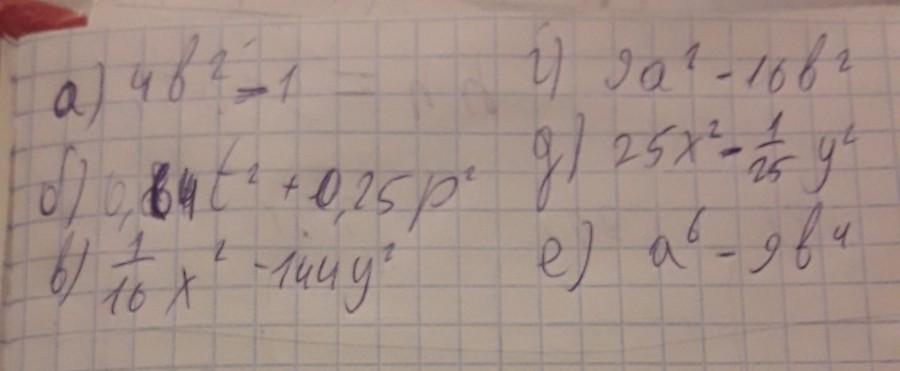 а) 4b² - 1
б) 0,64t² + 0,25p²
в) 1/16 x² - 144y²
г) 9a² - 16b²
д) 25x² - 1/25 y²
е) a⁶ - 9b⁴